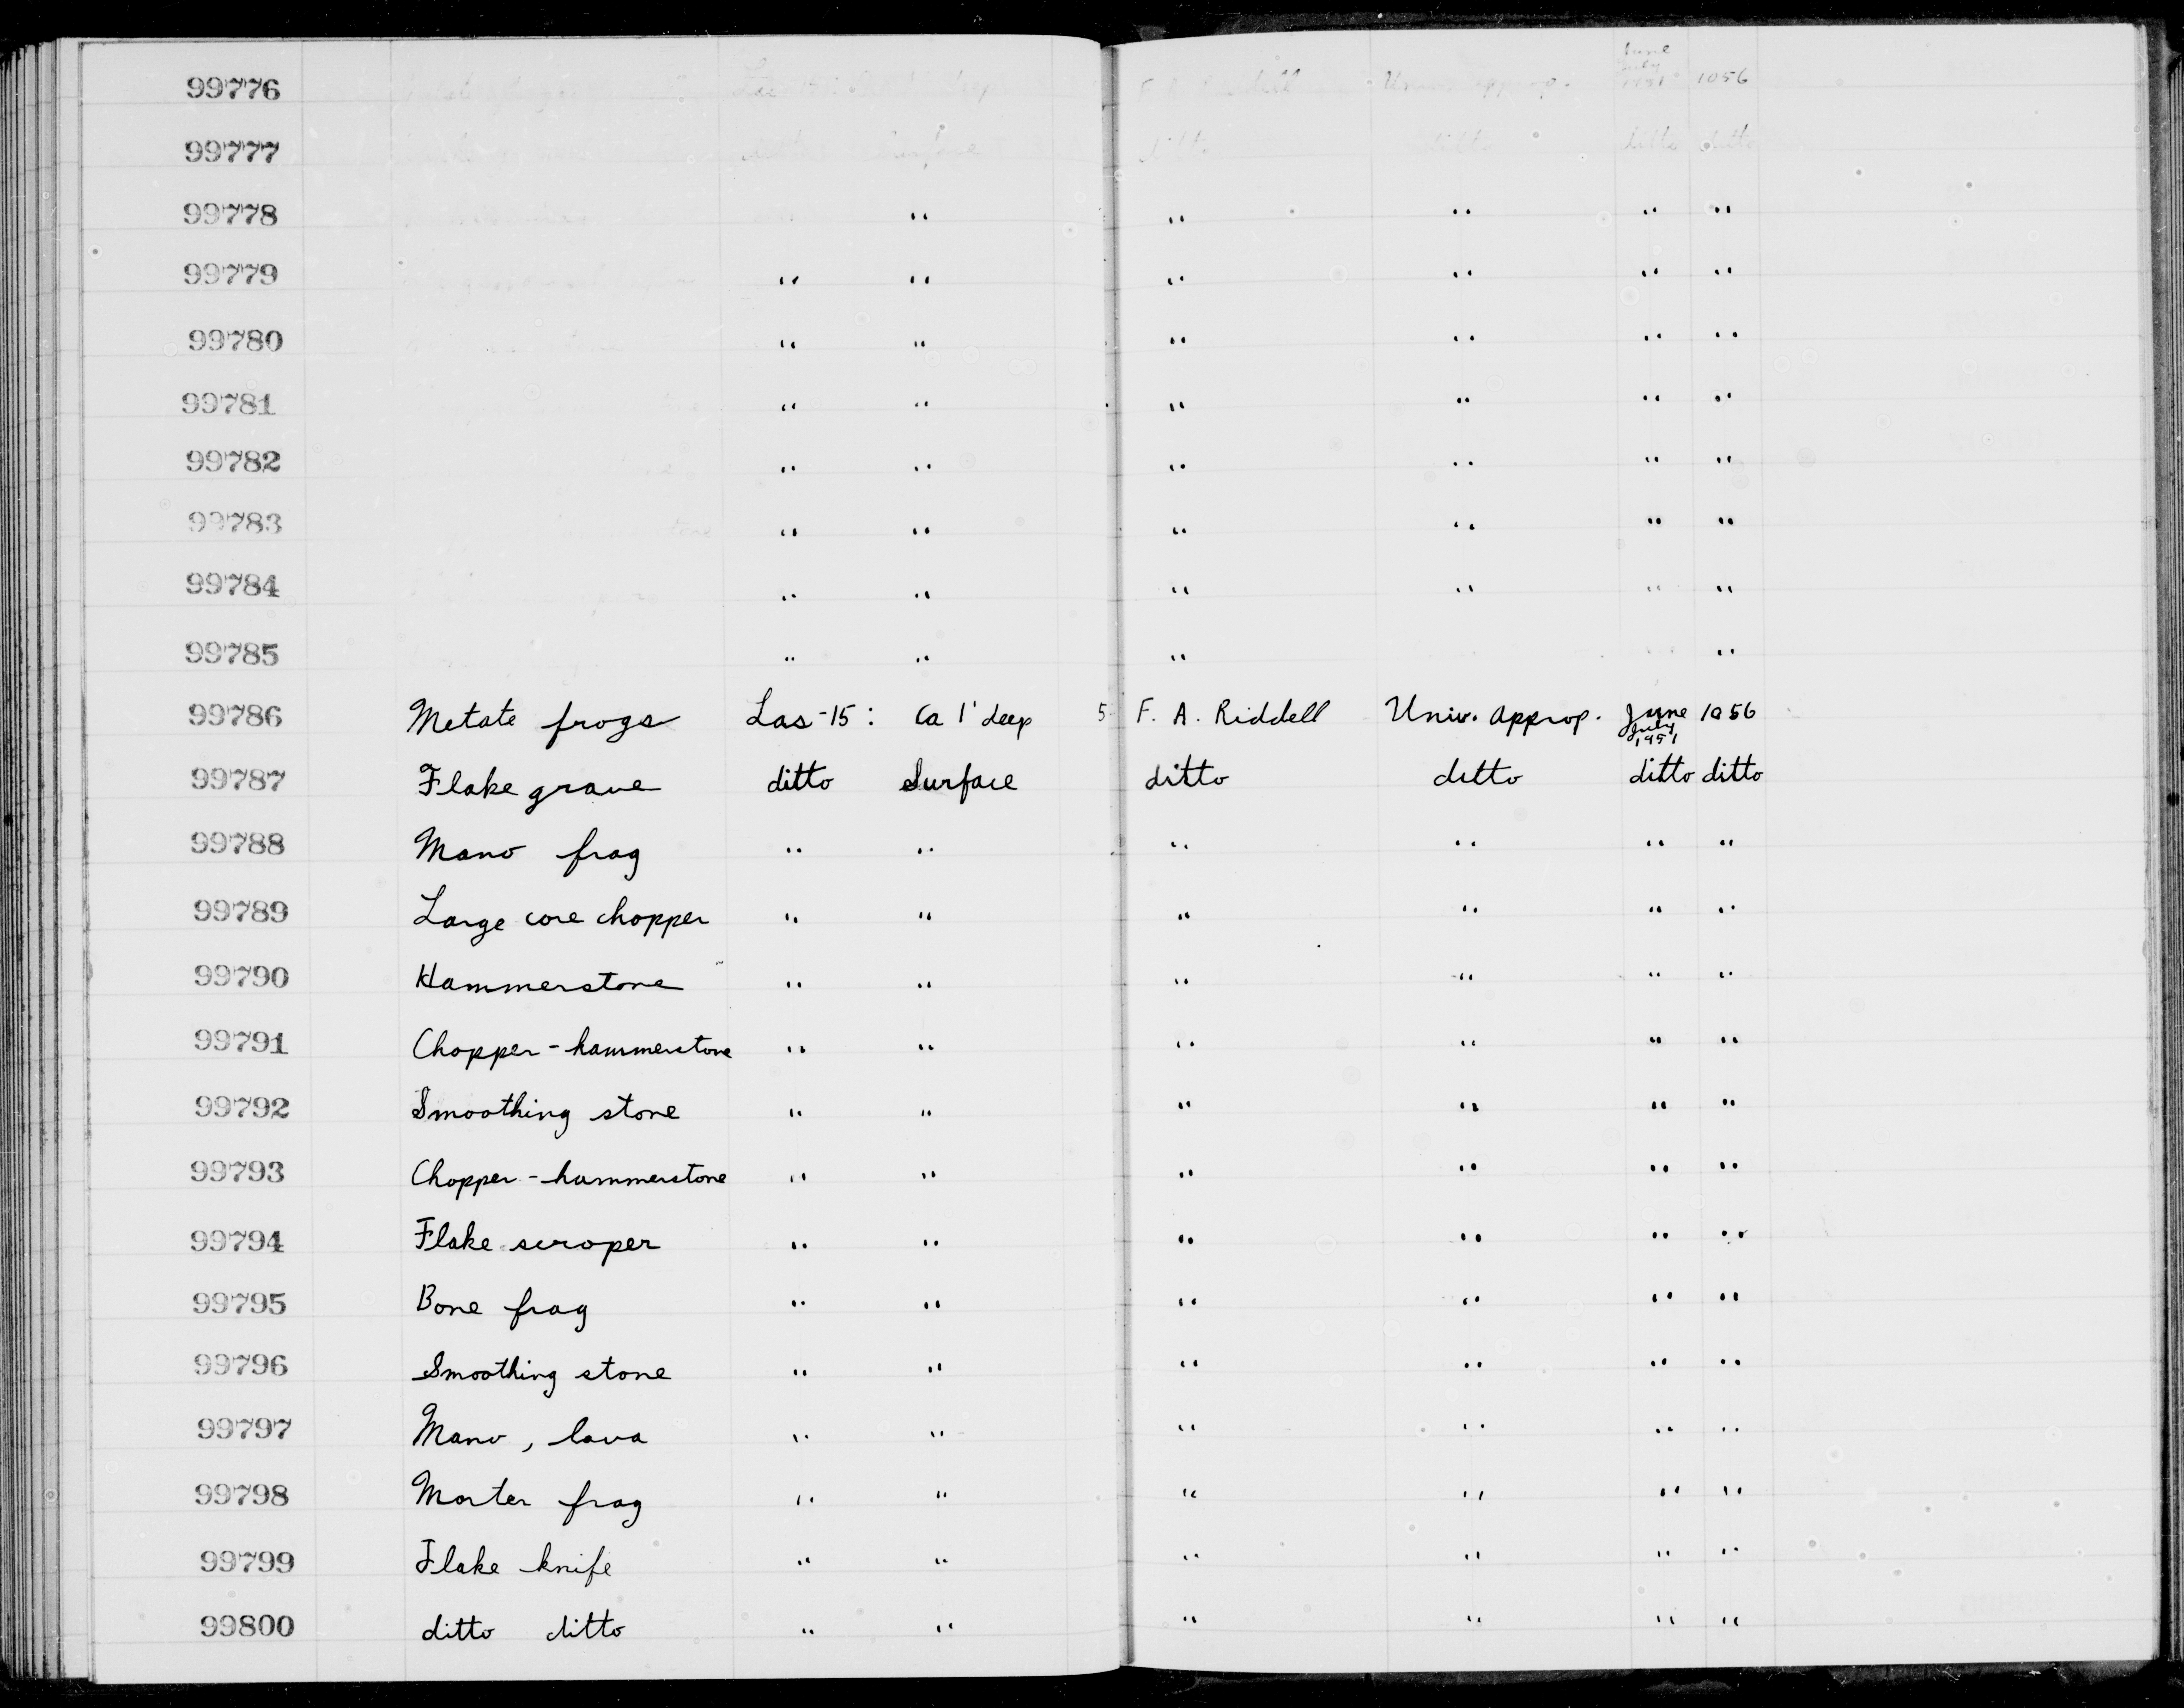 99776 F. A. Riddell Univ. approp. June July 1951 1056
99777 ditto Surface ditto ditto ditto ditto
99778 " " " " "
99779 " " " " " "
99780 " " " " " "
99781 " " " " " "
99782 " " " " " "
99783 " " " " " "
99784 " " " " " "
99785 " " " "
99786 Metate frags Las-15: Ca 1' deep 5 F. A. Riddell Univ. approp. June July 1951 1056
99787 Flake grave ditto Surface ditto ditto ditto ditto
99788 Mano frag " " " " " "
99789 Large core chopper " " " " " "
99790 Hammerstone " " " " " "
99791 Chopper-hammerstone " " " " " "
99792 Smoothing stone " " " " " "
99793 Chopper-hammerstone " " " " " "
99794 Flake scraper " " " " " "
99795 Bone frag " " " " " "
99796 Smoothing stone " " " " " "
99797 Mano, lava " " " " " "
99798 Morter frag " " " " " "
99799 Flake knife " " " " " "
99800 ditto ditto " " " " " "